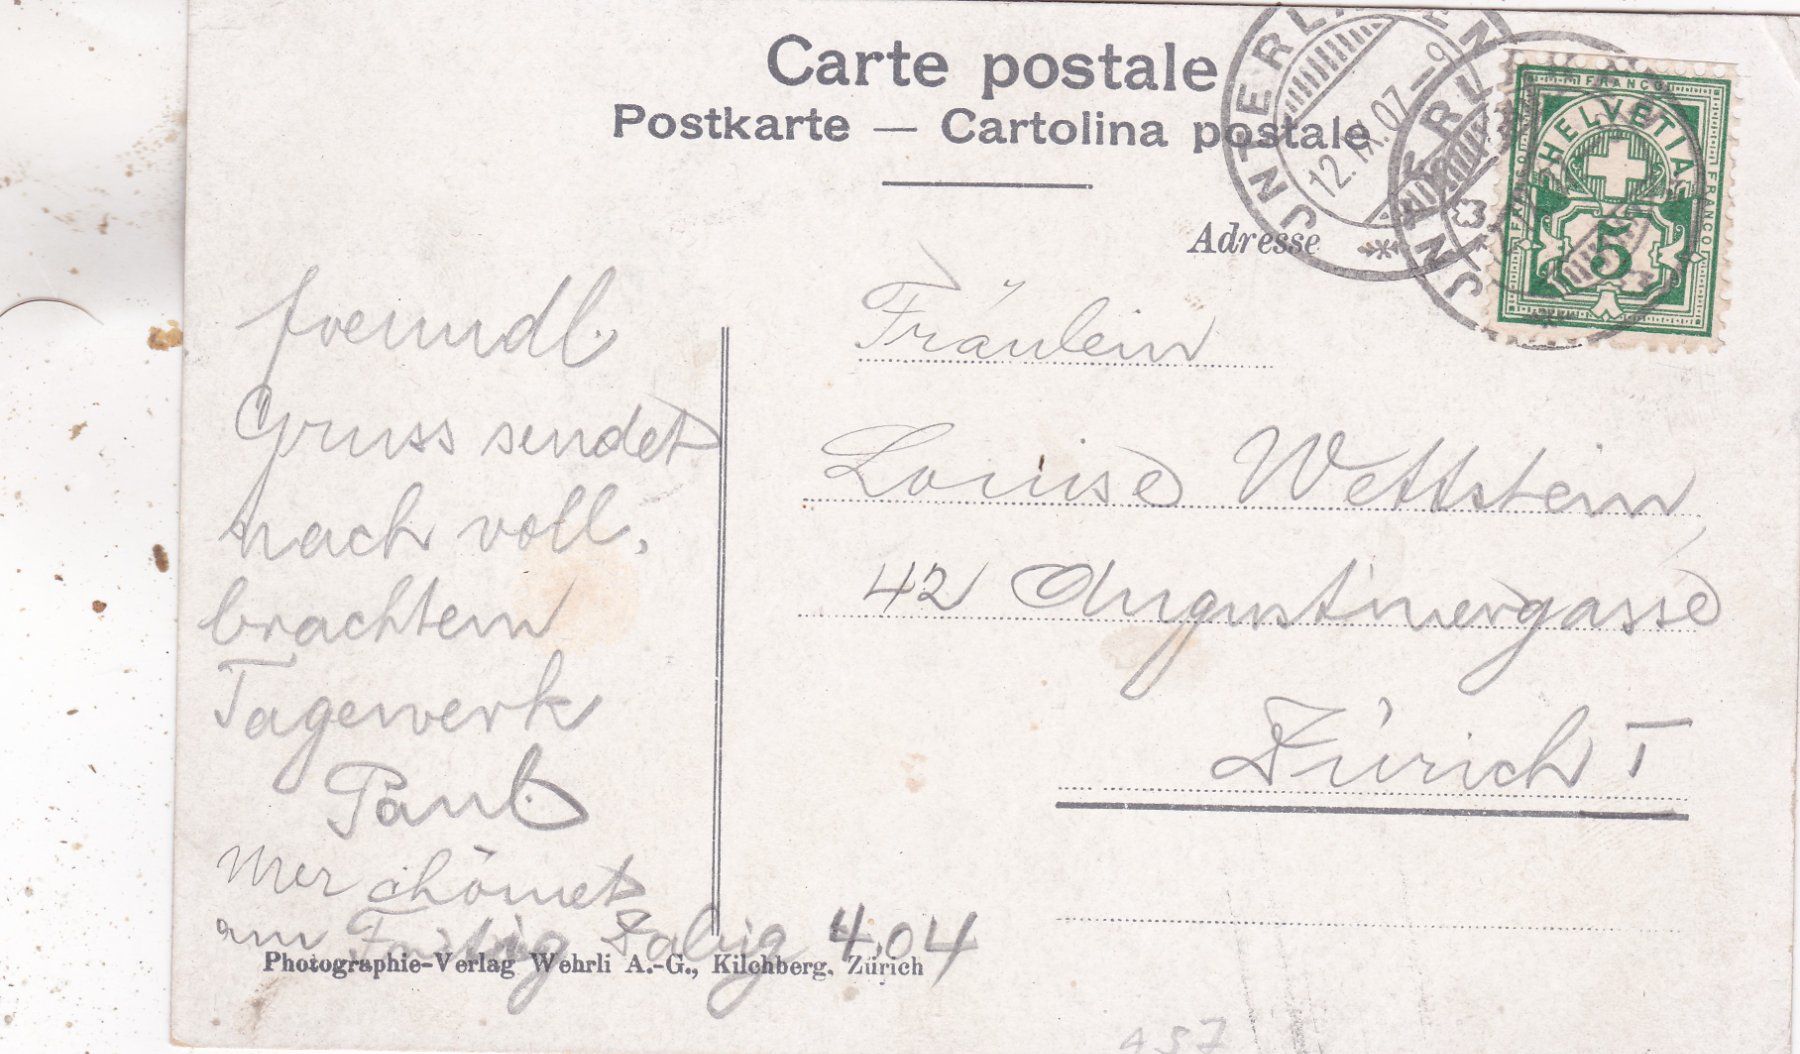 Carte postale
Postkarte — Cartolina postale
JNTERLAKEN
12.IX.07–9
JNTERL
FRANCO
FRANCO
FRANCO
HELVETIA
5
Adresse
freundl.
Gruss sendet
nach voll,
brachtem
Tagewerk
Paul.
Mer chömet
am Zabig 4.04
Fräulein
Louise Wettstein,
42 Augustinergasse
Zürich I
Photographie-Verlag Wehrli A.-G., Kilchberg, Zürich
457